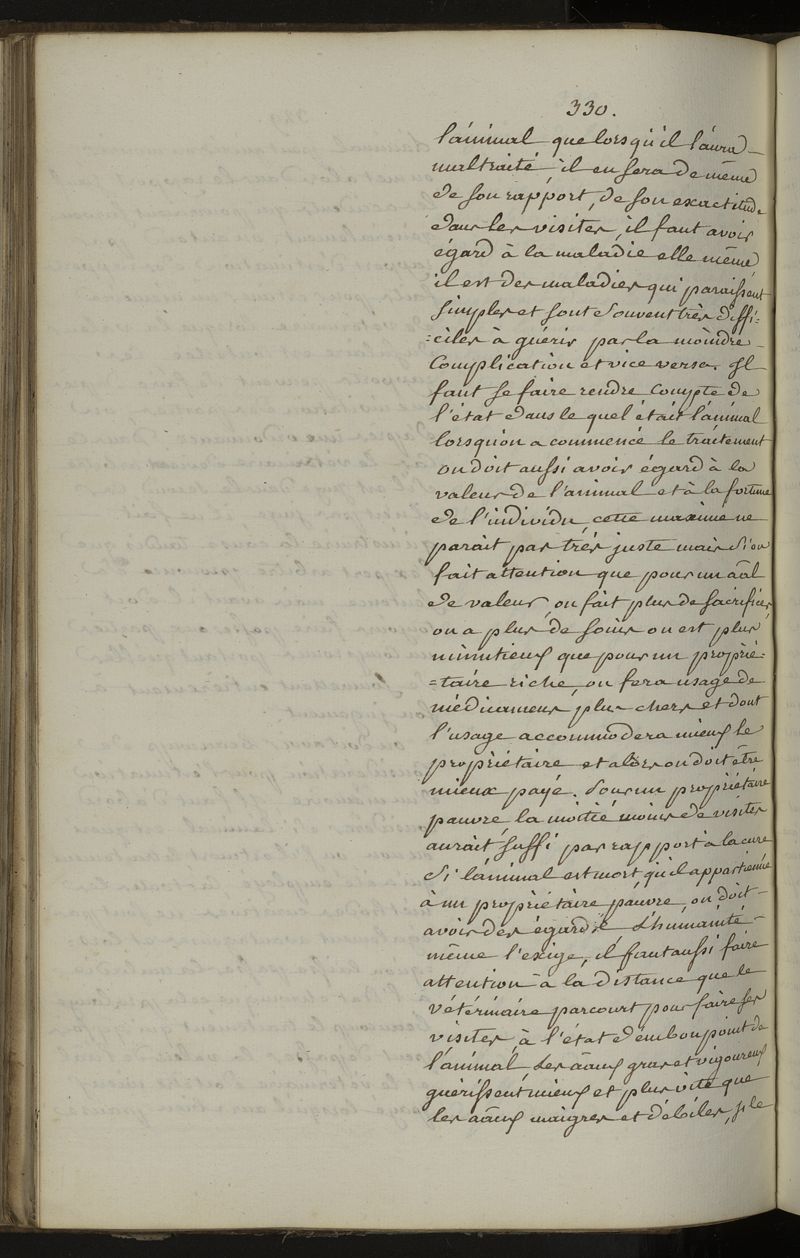 330.
l'animal que lorsqu'il l'aura
maltraité il en sera de même
de son rapport, de son exactitude
dans les visites, il faut avoir
égard à la maladie elle même
il est des maladies qui paraissent
simples et sont souvent très diffi=
=ciles à guérir par la moindre
complication et vice versa. Il
faut se faire rendre compte de
l'état dans le quel était l'animal
lorsqu'on a commencé le traitement
on doit aussi avoir égard à la
valeur de l'animal et à la fortune
de l'individu, cette maxime ne
parait pas très juste mais si on
fait attention que pour un aal
de valeur, on fait plus de sacrifices
on a plus de soins on est plus
minutieux que pour un proprié=
=taire riche, on fera usage de
médicamens, plus chers et dont
l'usage accommodera mieux le
propriétaire et alors on doit être
mieux payé. Pour un propriétaire
pauvre la moitié moins de visites
aurait suffi par rapport à la cure
si l'animal est mort qu'il appartienne
à un propriétaire pauvre, on doit
avoir des égards l'humanité
même l'exige, il faut aussi faire
attention à la distance que le
vétérinaire parcourt pour faire ses
visites, à l'état d'embonpoint de
l'animal, les aaux gras et vigoureux
guérissent mieux et plus vite que
les aaux maigres et débiles, si le